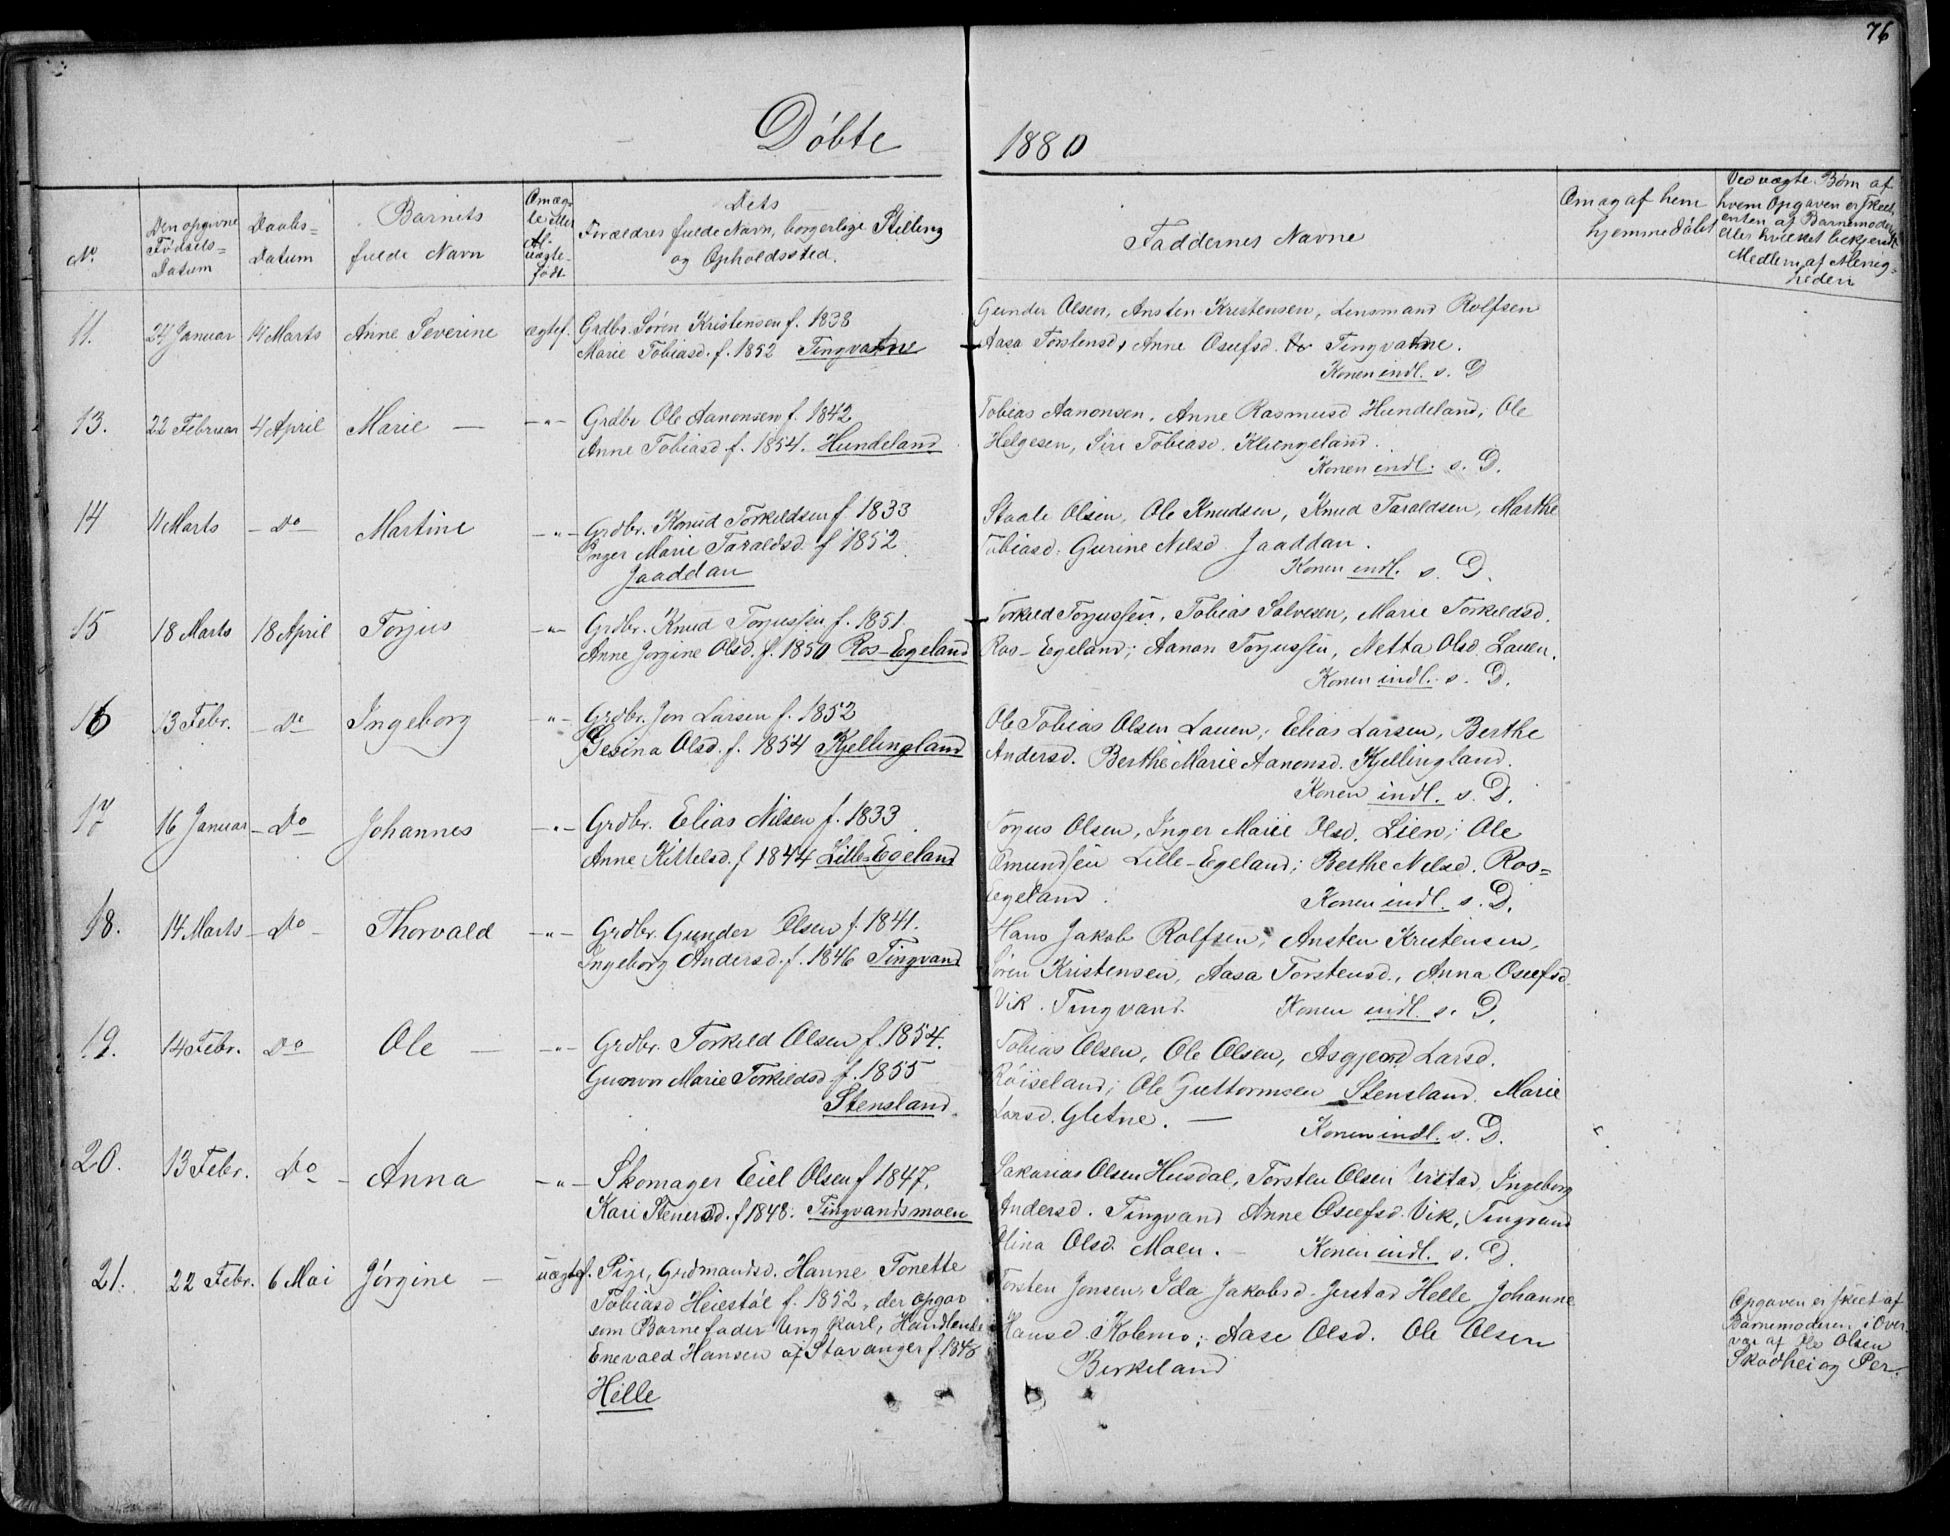 76
Döbte 1880
No
Den opgivne
Fødsels-
Datum
Daabs-
Datum
Barnets
fulde Navn
Om ægte eller
uægte
født
Dets
Forældres fulde Navn, borgerlige Stilling
og Opholdssted.
Faddernes Navne
Om og af hvem
hjemmedøbt
Ved uægte Børn af
hvem Opgaven er skeet,
enten af Barnemoderen
eller hvilket bekjendt
Medlem af Menig-
heden
11. 24 Januar 14 Marts Anne Severine ægtef. Grdbr. Sören Kristensen f. 1838
Marie Tobiasd. f. 1852 Tingvatne
Gunder Olsen, Ansten Kristensen, Lensmand Rolfsen
Aasa Torstensd, Anne Osufsd. Tingvatne.
Konen indl. s. D
13. 22 Februar 4 April Marie — -"- Grdbr Ole Aanonsen f. 1842
Anne Tobiasd f. 1854. Hundeland
Tobias Aanonsen, Anne Rasmusd Hundeland; Ole
Helgesen, Siri Tobiasd. Kliengeland.
Konen indl. s. D.
14 4 Marts — Do — Martine -"- Grdbr. Knud Torkildsen f 1833
Inger Marie Taraldsd. f 1852
Jaaddan
Staale Olsen, Ole Knudsen, Knud Taraldsen, Marthe
Tobiasd. Gurine Nilsd Jaaddan.
Konen indl. s. D.
15 18 Marts 18 April Torjus -"- Grdbr. Knud Torjussen f. 1851
Anne Jorgine Olsd. f. 1850 Ros-Egeland
Torkild Torjussen, Tobias Salvesen, Marie Torkildsd.
Ros-Egeland; Aanon Torjussen, Netta Olsd. Lauen.
Konen indl. s. D.
16 13 Febr. — Do — Ingeborg -"- Grdbr. Jon Larsen f. 1852
Gesina Olsd. f. 1854 Kjellingland
Ole Tobias Olsen Lauen; Elias Larsen, Berthe
Andersd. Berthe Marie Aanonsd. Kjellingland.
Konen indl. s. D.
17 16 Januar — Do Johannes -"- Grdbr. Elias Nilsen f. 1833
Anne Kittelsd. f 1844 Lille-Egeland
Torjus Olsen, Inger Marie Olsd. Lien; Ole
Omundsen Lille-Egeland; Berthe Nilsd. Ros-
egeland. Konen indl. s. D.
18. 14 Marts — Do — Thorvald -"- Grdbr. Gunder Olsen f. 1841.
Ingeborg Andersd. f. 1846 Tingvand
Hans Jakob Rolfsen, Ansten Kristensen,
Sören Kristensen, Aasa Torstensd., Anna Osufsd.
Vik. Tingvand. Konen indl. s. D.
19. 14 Febr. Do Ole — -"- Grdbr. Torkild Olsen f. 1854.
Gunvor Marie Torkildsd f. 1855
Stensland.
Tobias Olsen, Ole Olsen, Asgjerd Larsd.
Röiseland; Ole Guttormsen Stensland. Marie
Larsd. Gletne. — Konen indl. s. D.
20. 13 Febr. Do — Anna -"- Skomager Eiel Olsen f 1847.
Kari Stenersd. f 1848. Tingvandsmoen
Sakarias Olsen Husdal, Torsten Olsen Jerstad, Ingeborg
Andersd. Tingvand Anne Osufsd. Vik, Tingvand
Olina Olsd. Moen. — Konen indl. s. D.
21. 22 Febr. 6 Mai Jörgine — uægtef. Pige, Grdmandsd. Hanne Tonette
Tobiasd Heiestöl f. 1852, der opgav
som Barnefader Ungkarl, Handlende
Enevald Hansen af Stavanger f. 1848
Hille
Torsten Jonsen, Ida Jakobsd. Jerstad Helle, Johanne
Hansd. Kolemo; Aase Olsd. Ole Olsen
Birkeland
Opgaven er skeet af
Barnemoderen i Over-
vær af Ole Olsen
Skodhei og Per